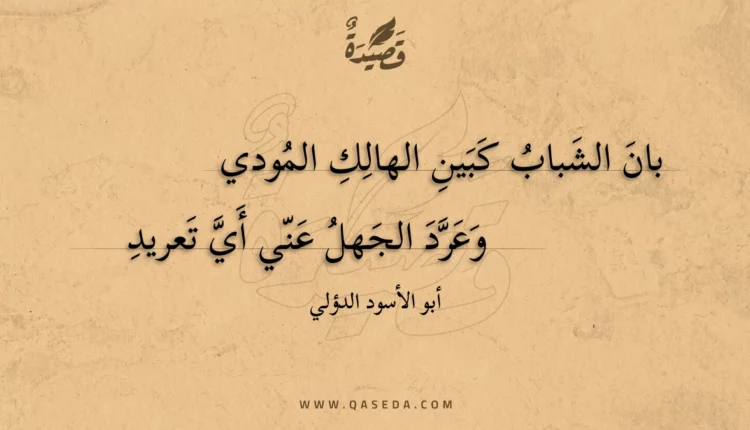 قَصِيدَةٌ
بانَ الشَبابُ كَبَينِ الهالِكِ المُودي
وَعَرَّدَ الجَهلُ عَنّي أَيَّ تَعريدِ
أبو الأسود الدؤلي
WWW.QASEDA.COM